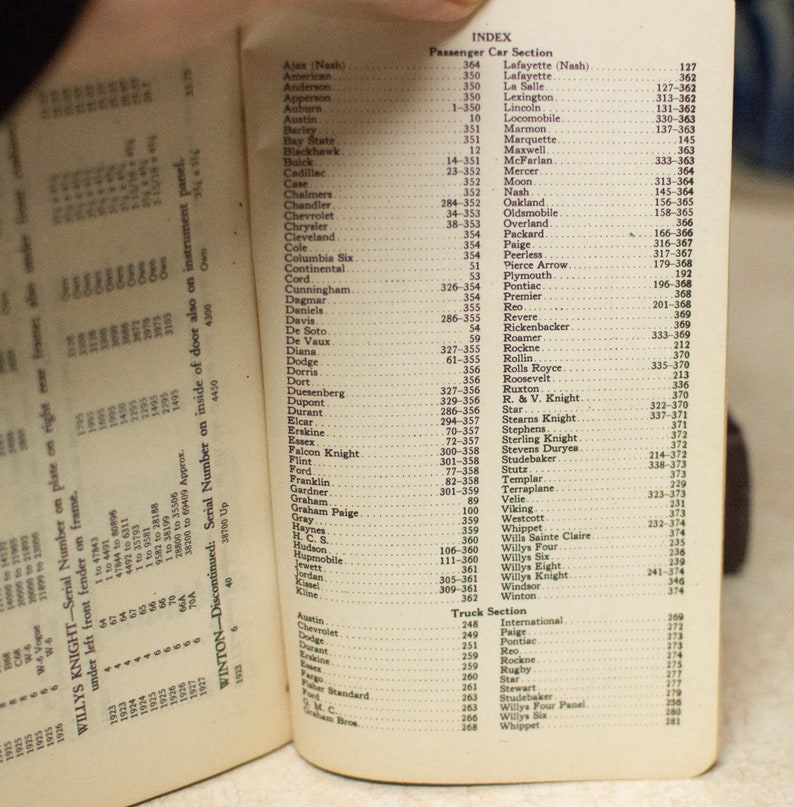 WILLYS KNIGHT—Serial Number on plate on right rear frame; also under front cushion
under left front fender on frame.
1923 4 64 1 to 47843
1923 4 67 1 to 4491
1924 4 64 47844 to 80896
1924 4 67 4492 to 6311
1925 6 66 1 to 9581
1926 6 66 9582 to 28188
1926 6 70 1 to 38199
1927 6 66A 28800 to 35506 1495
1927 6 70A 38200 to 69409 Approx.
WINTON—Discontinued: Serial Number on inside of door also on instrument panel.
1923 6 40 38700 Up 4450 4300 Own 3½ x 5¼
INDEX
Passenger Car Section
Ajax (Nash) 364
American 350
Anderson 350
Apperson 350
Auburn 1-350
Austin 10
Barley 351
Bay State 351
Blackhawk 12
Buick 14-351
Cadillac 23-352
Case 352
Chalmers 352
Chandler 284-352
Chevrolet 34-353
Chrysler 38-353
Cleveland 354
Cole 354
Columbia Six 354
Continental 51
Cord 53
Cunningham 326-354
Dagmar 354
Daniels 355
Davis 286-355
De Soto 54
De Vaux 59
Diana 327-355
Dodge 61-355
Dorris 356
Dort 356
Duesenberg 327-356
Dupont 329-356
Durant 286-356
Elcar 294-357
Erskine 70-357
Essex 72-357
Falcon Knight 300-358
Flint 301-358
Ford 77-358
Franklin 82-358
Gardner 301-359
Graham 89
Graham Paige 100
Gray 359
Haynes 359
H. C. S. 360
Hudson 106-360
Hupmobile 111-360
Jewett 361
Jordan 305-361
Kissel 309-361
Kline 362
Lafayette (Nash) 127
Lafayette 362
La Salle 127-362
Lexington 313-362
Lincoln 131-362
Locomobile 330-363
Marmon 137-363
Marquette 145
Maxwell 363
McFarlan 333-363
Mercer 364
Moon 313-364
Nash 145-364
Oakland 156-365
Oldsmobile 158-365
Overland 366
Packard 166-366
Paige 316-367
Peerless 317-367
Pierce Arrow 179-368
Plymouth 192
Pontiac 196-368
Premier 368
Reo 201-368
Revere 369
Rickenbacker 369
Roamer 333-369
Rockne 212
Rollin 370
Rolls Royce 335-370
Roosevelt 213
Ruxton 336
R. & V. Knight 370
Star 322-370
Stearns Knight 337-371
Stephens 371
Sterling Knight 372
Stevens Duryea 372
Studebaker 214-372
Stutz 338-373
Templar 373
Terraplane 229
Velie 323-373
Viking 231
Westcott 373
Whippet 232-374
Wills Sainte Claire 374
Willys Four 235
Willys Six 236
Willys Eight 239
Willys Knight 241-374
Windsor 346
Winton 374
Truck Section
Austin 248
Chevrolet 249
Dodge 251
Durant 259
Erskine 259
Essex 260
Fargo 261
Fisher Standard 263
Ford 263
G. M. C. 266
Graham Bros. 268
International 269
Paige 272
Pontiac 273
Reo 273
Rockne 274
Rugby 275
Star 277
Stewart 277
Studebaker 279
Willys Four Panel 236
Willys Six 280
Whippet 281